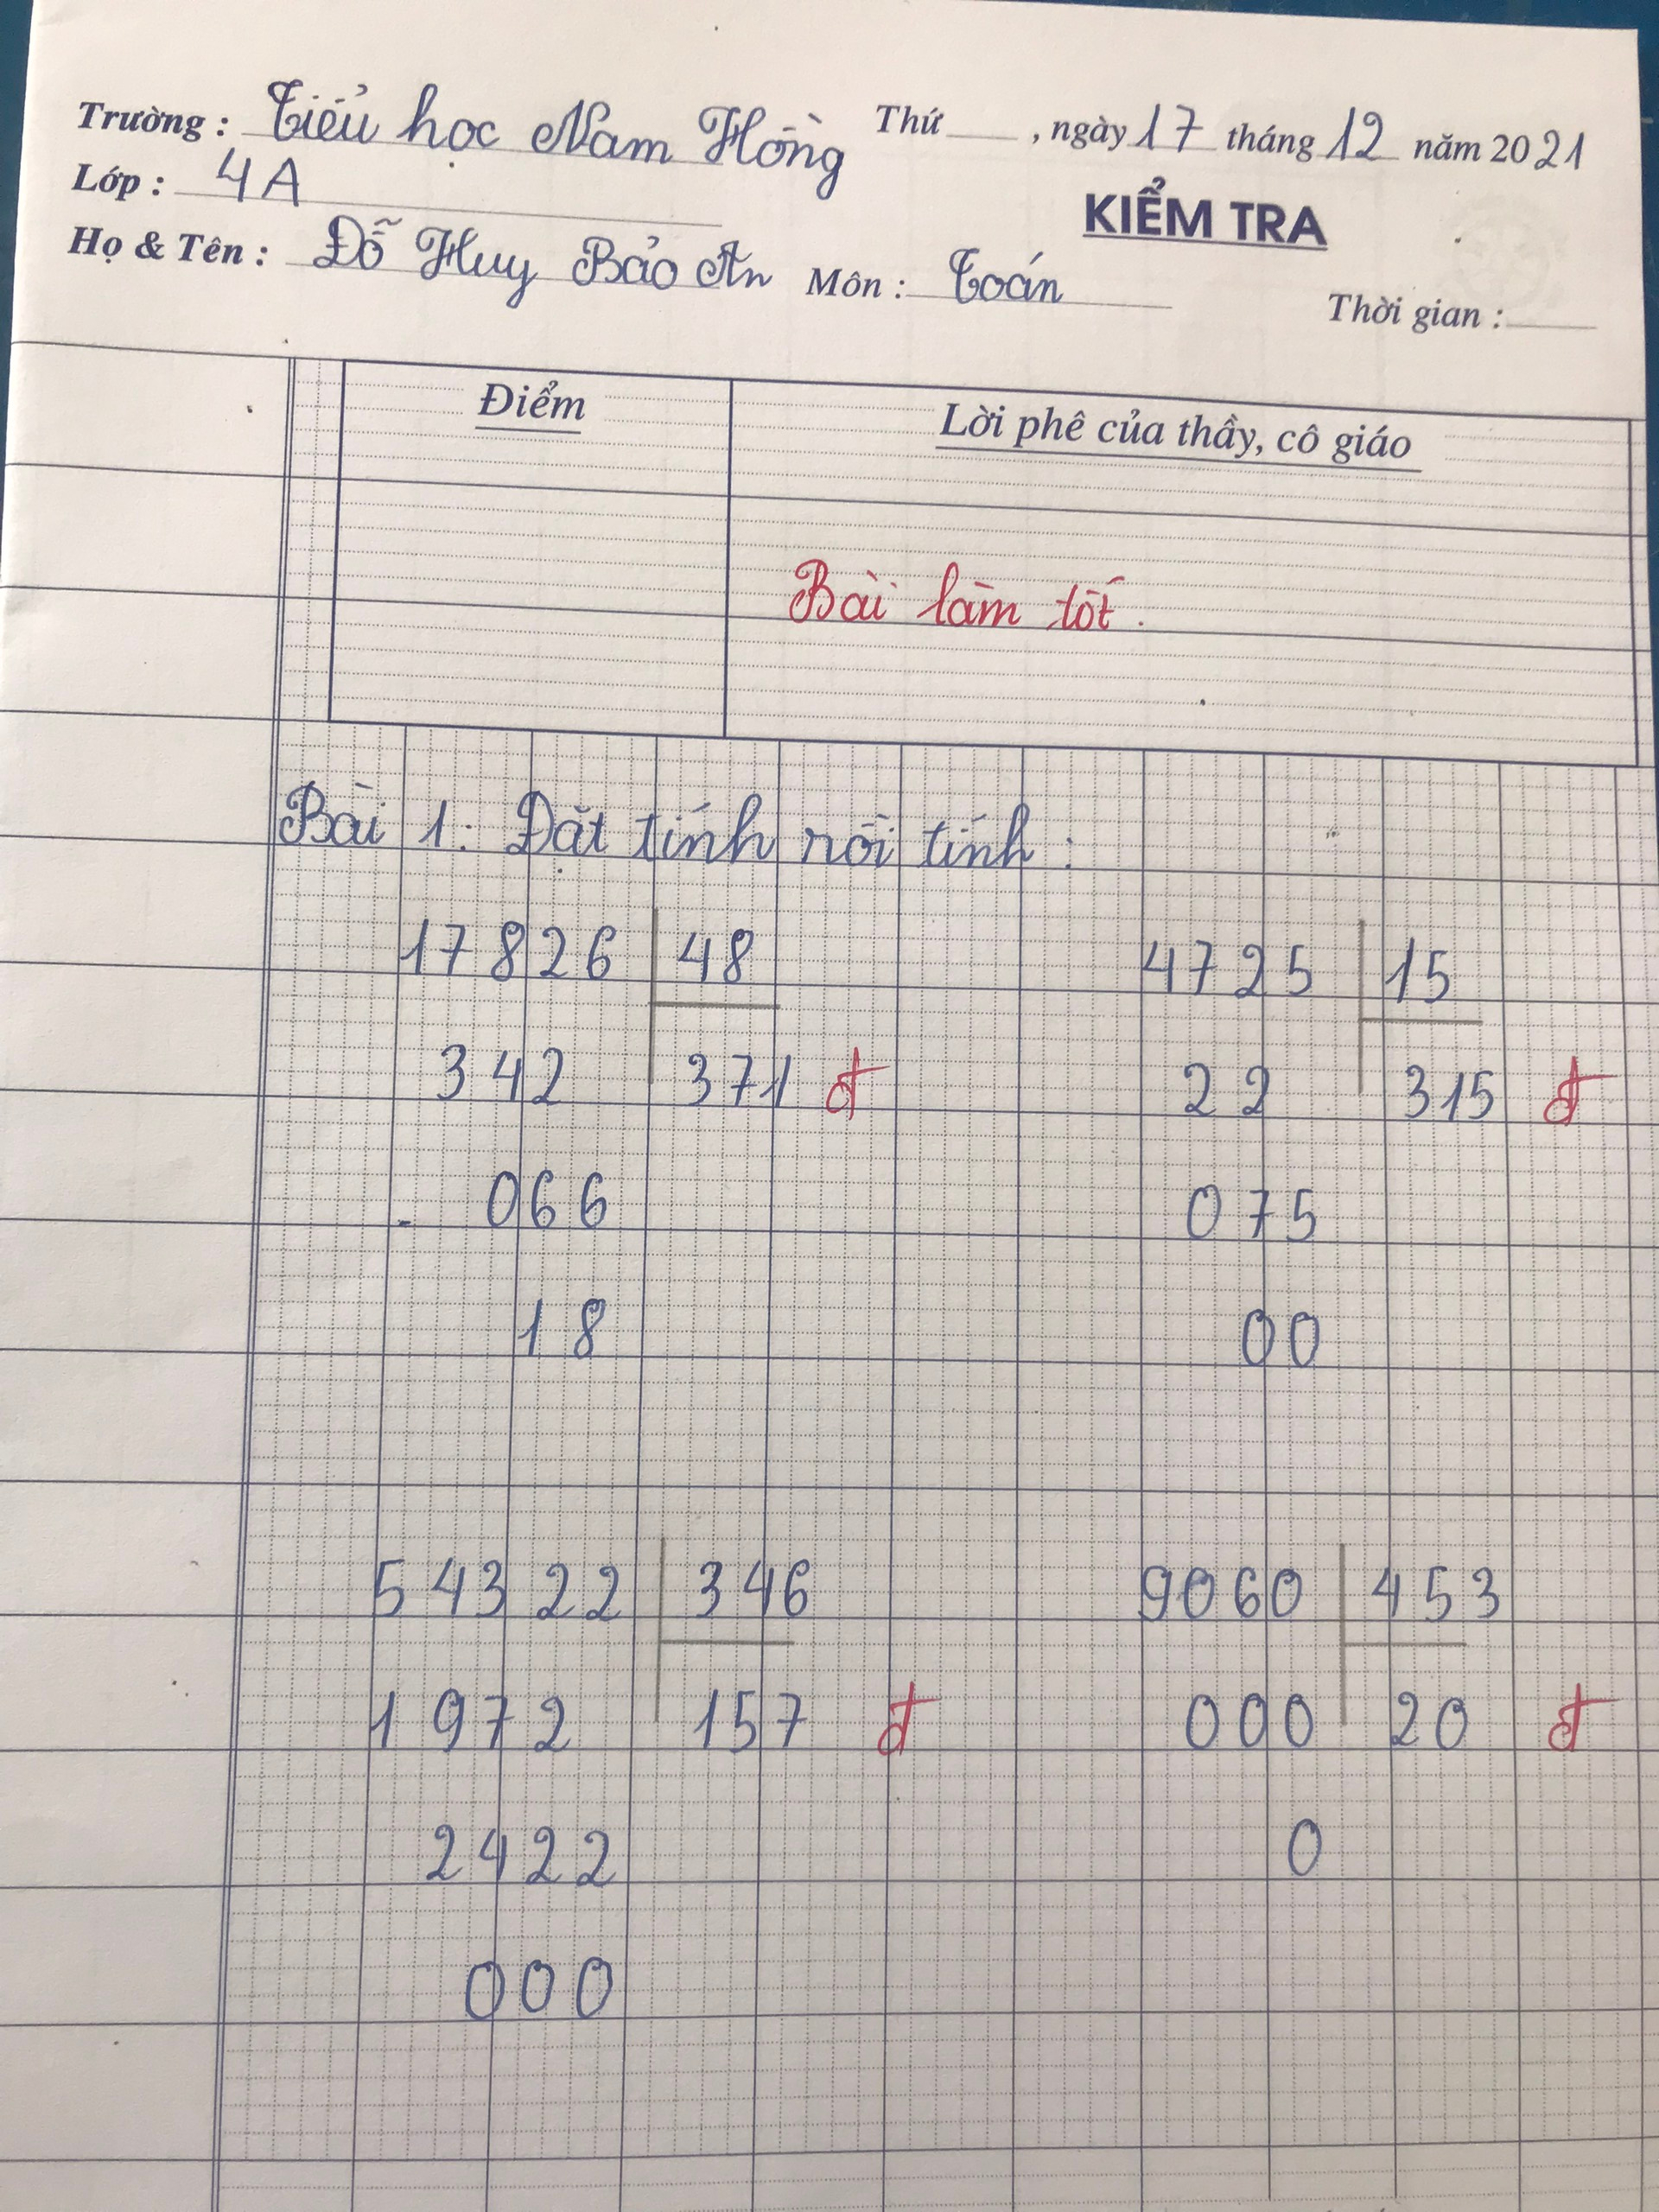 Trường : Tiểu học Nam Hồng Thứ , ngày 17 tháng 12 năm 2021
Lớp : 4A
KIỂM TRA
Họ & Tên : Đỗ Huy Bảo An Môn : Toán Thời gian :
Điểm Lời phê của thầy, cô giáo
Bài làm tốt.
Bài 1: Đặt tính rồi tính :
17826 48 4725 15
342 371 đ 22 315 đ
066 075
18 00
54322 346 9060 453
1972 157 đ 000 20 đ
2422 0
000